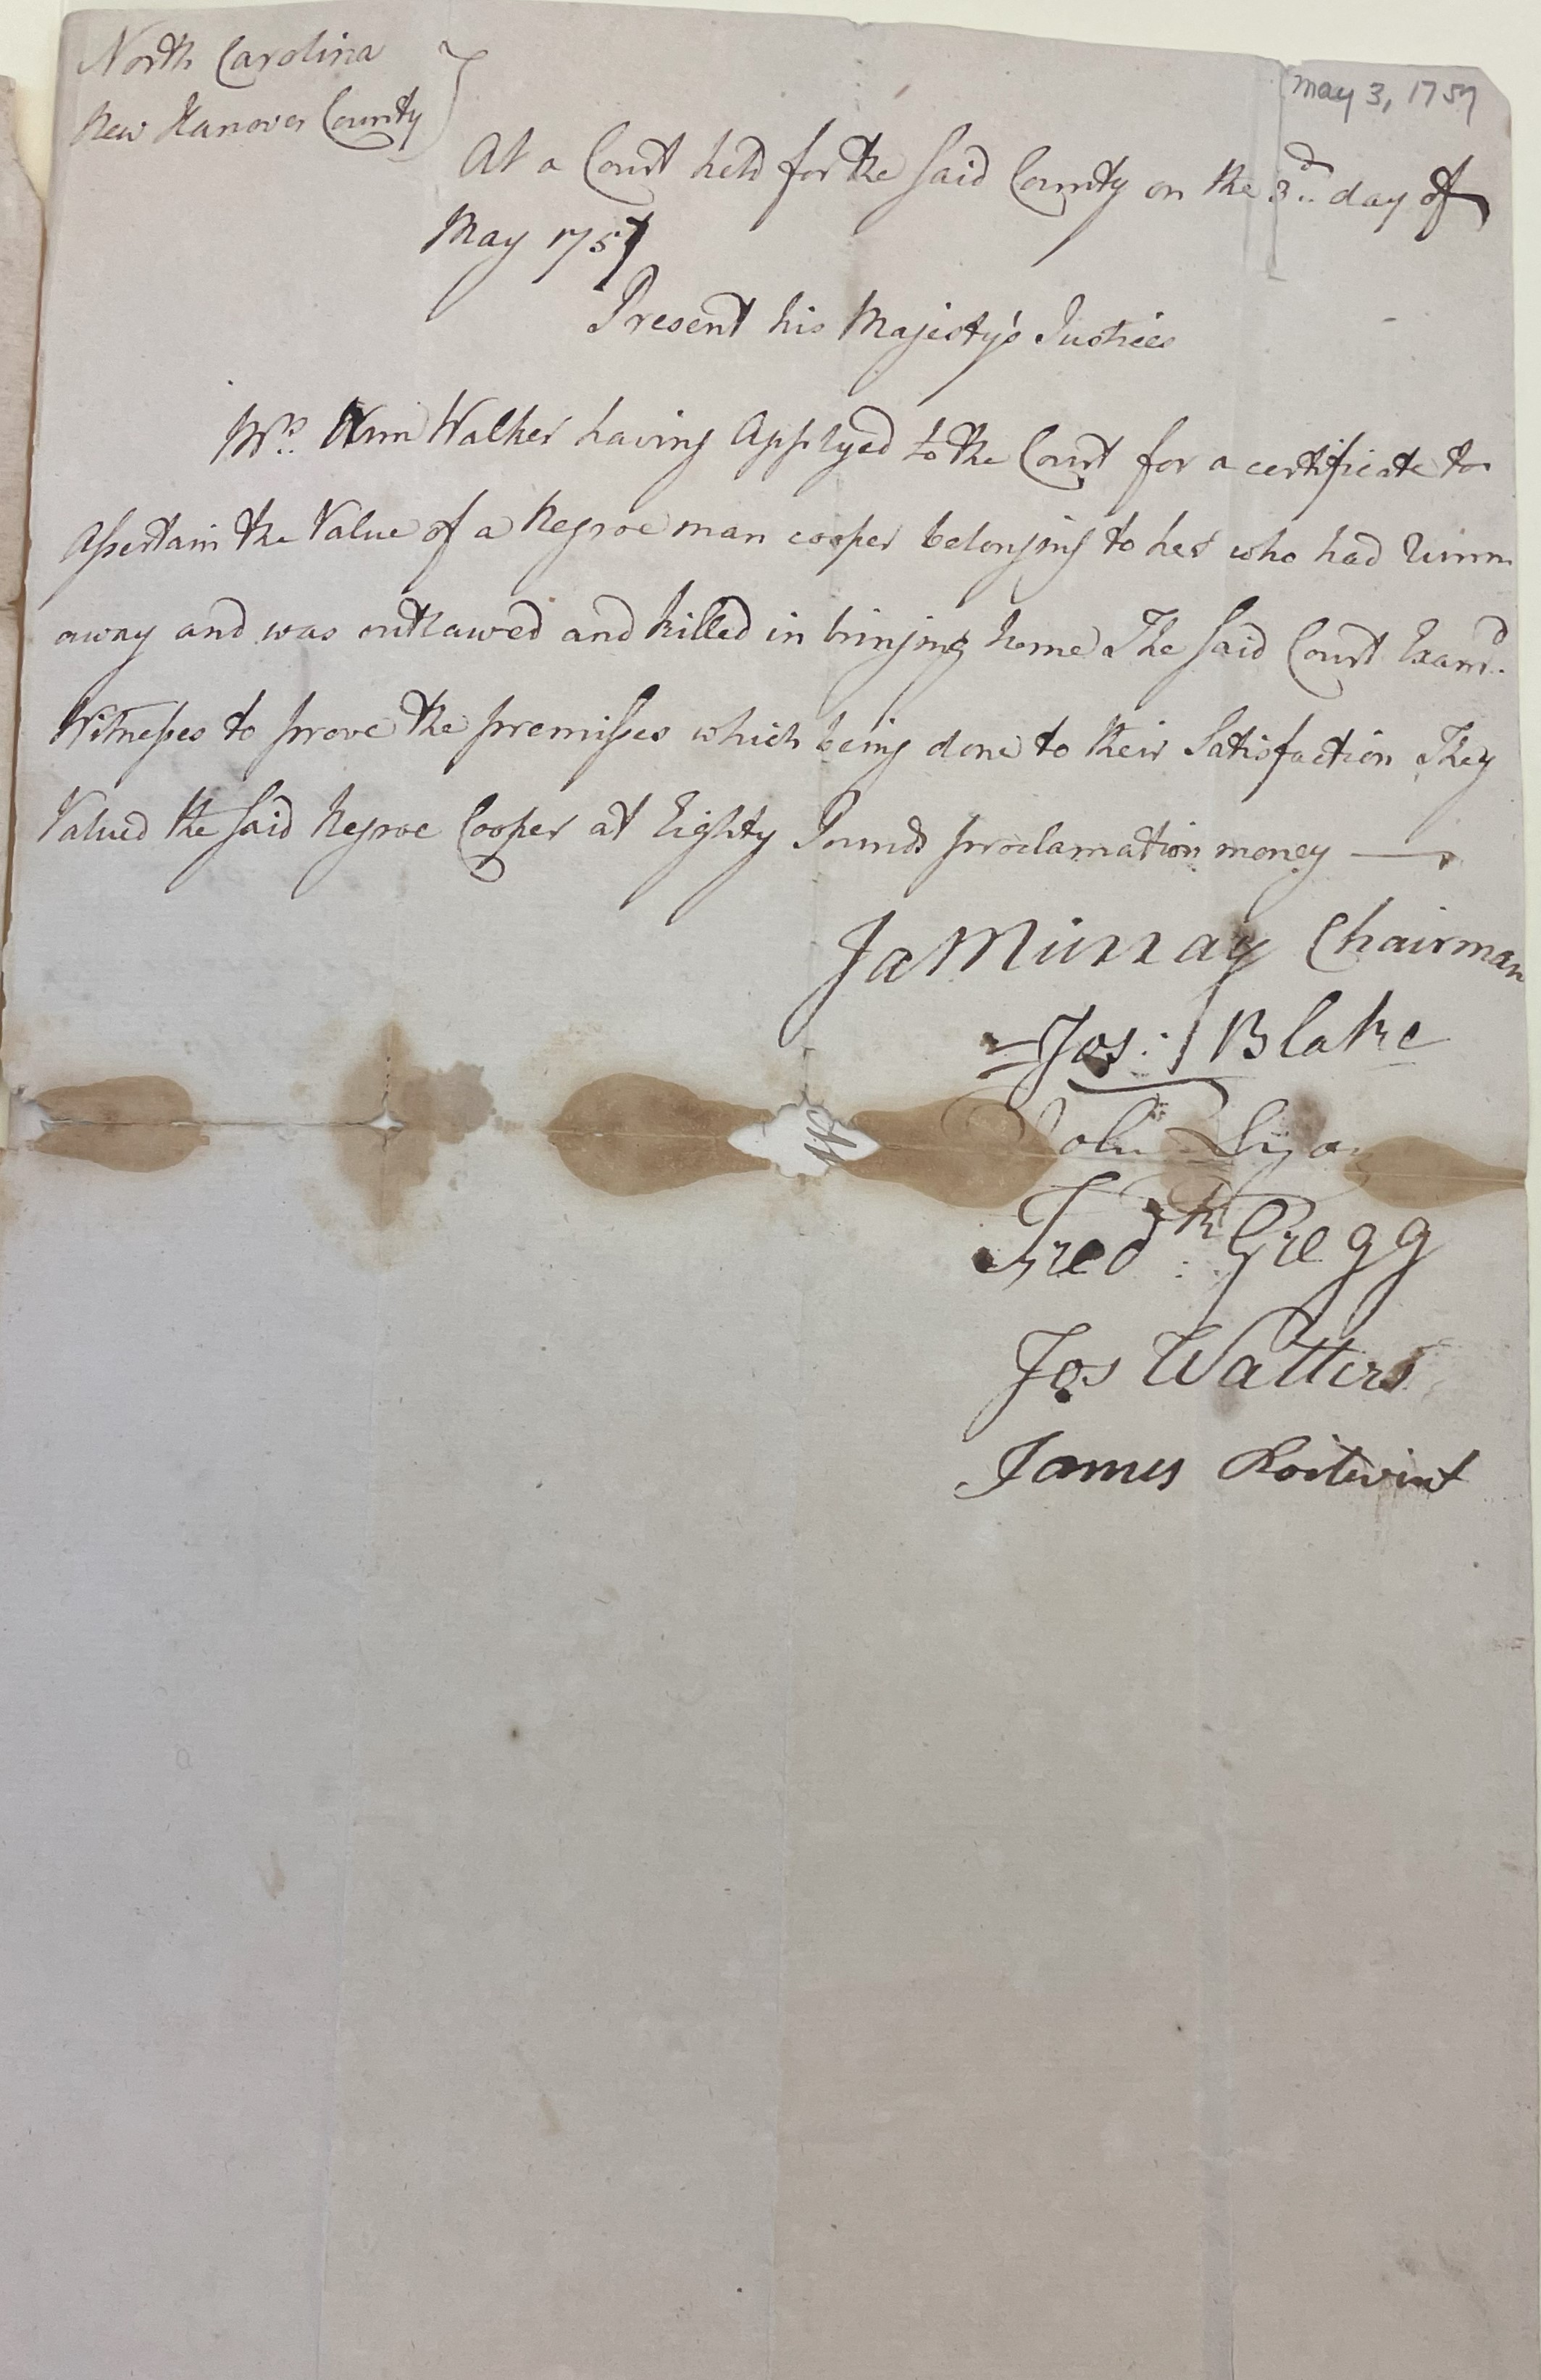 North Carolina
New Hanover County
May 3, 1757
At a Court held for the Said County on the 3.d day of
May 1757
Present his Majesty's Justices
Mrs. Ann Walker having Applyed to the Court for a certificate to
Assertain the Value of a Negroe man cooper belonging to her who had Runn
away and was outlawed and killed in bringing home The Said Court Examd.
Witnesses to prove the premisses which being done to their Satisfaction They
Valued the Said Negroe Cooper at Eighty Pounds proclamation money
Ja Murray Chairman
Jos: Blake
John Lyon
Fredk: Gregg
Jos Watters
James